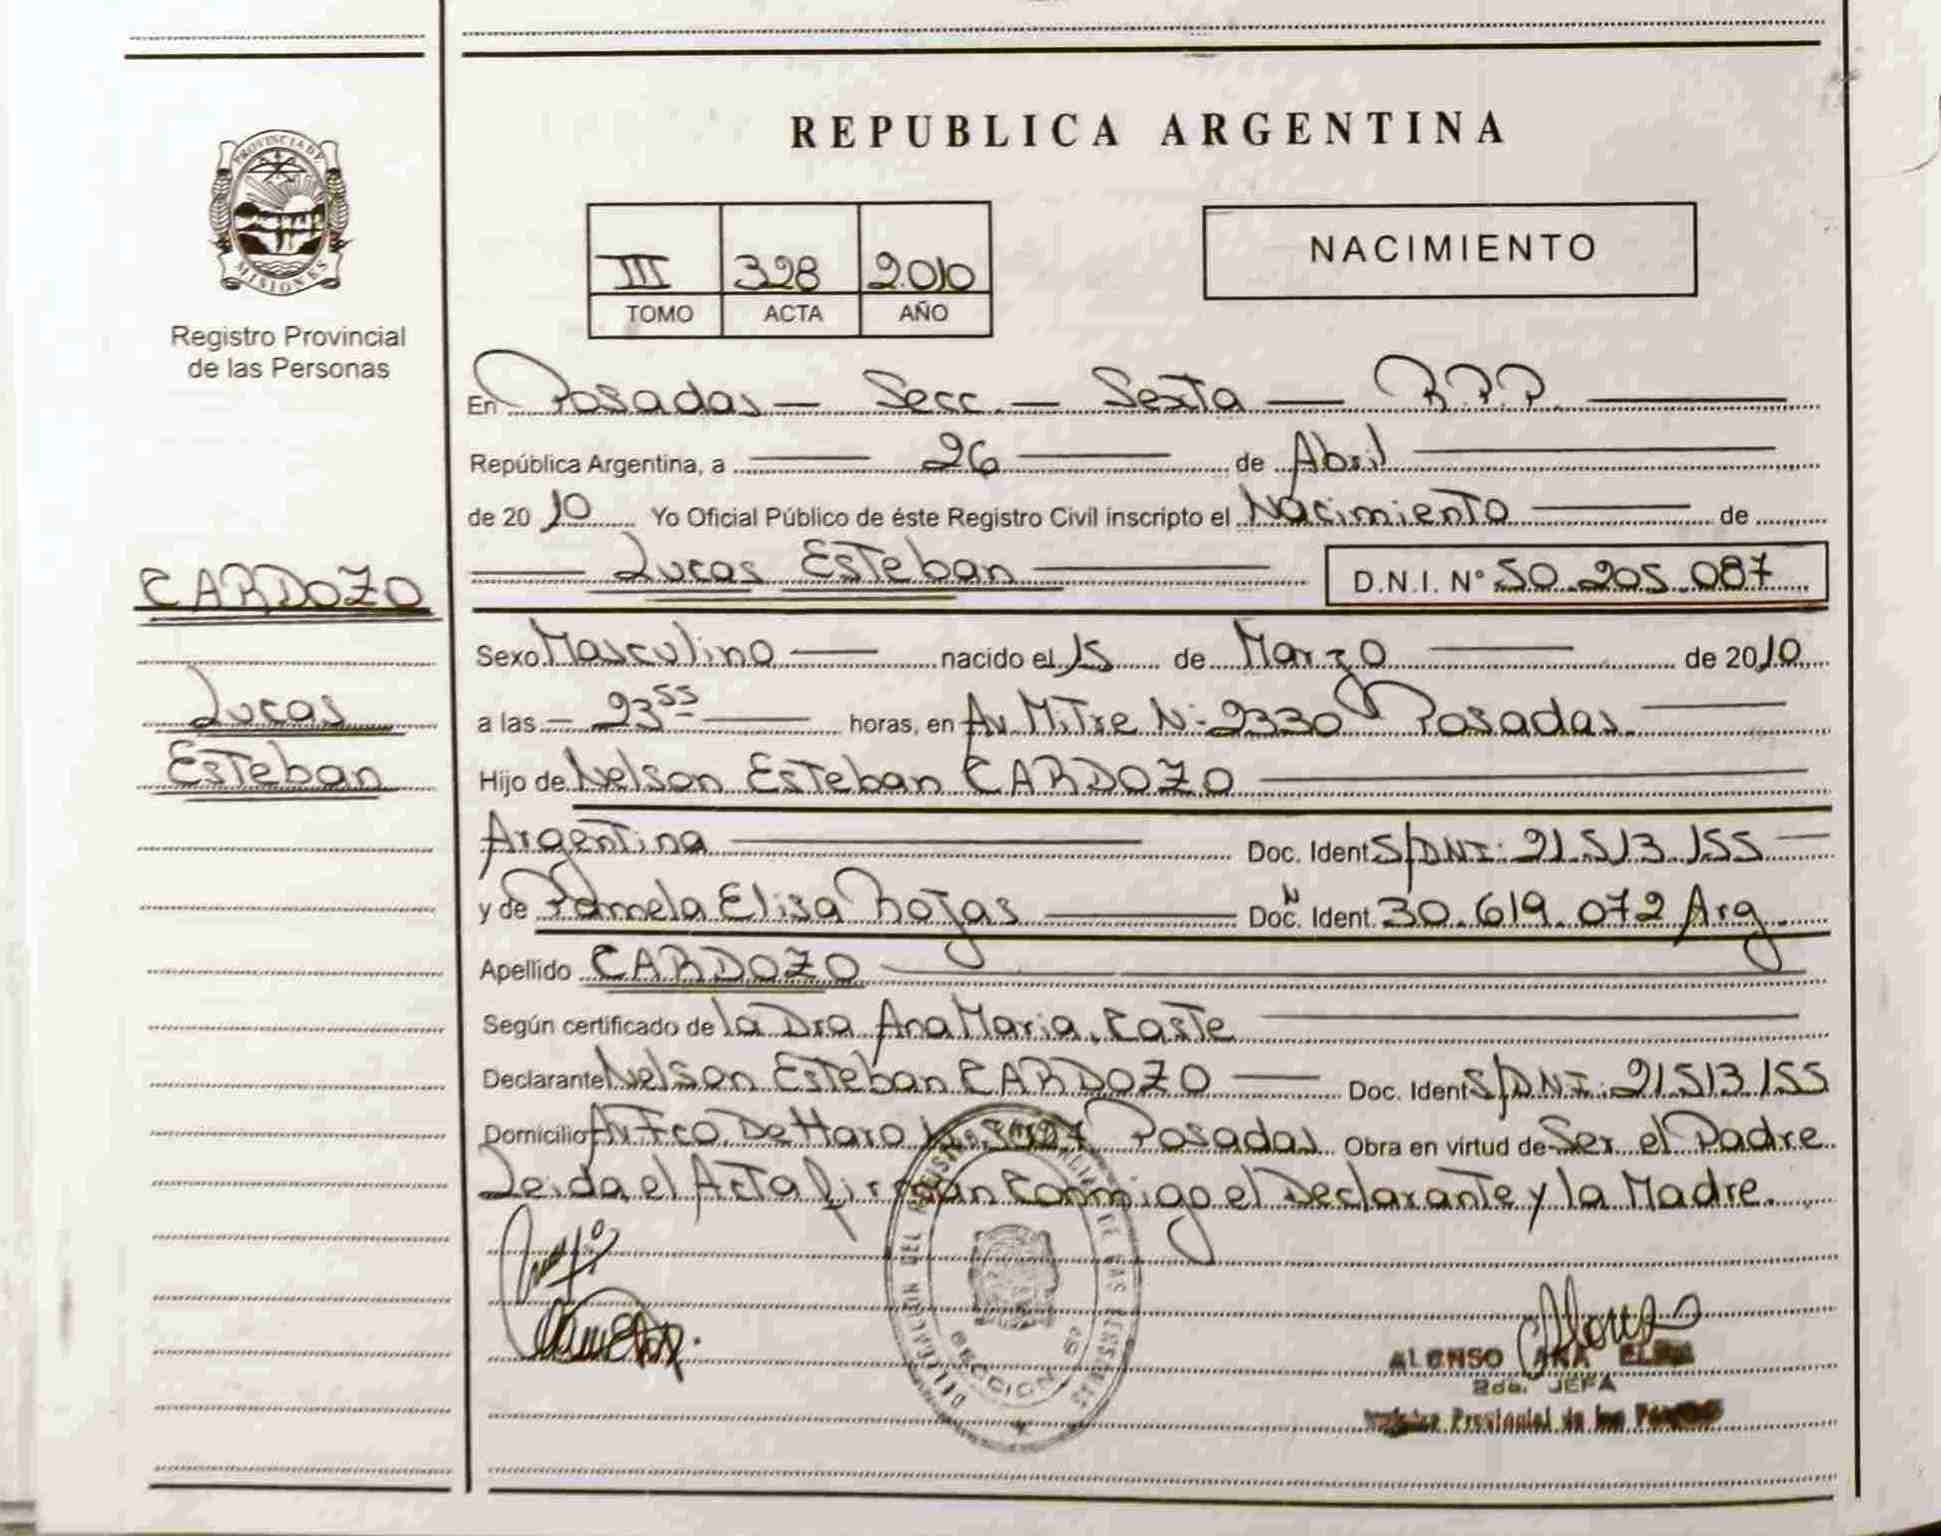 REPUBLICA ARGENTINA
PROVINCIA DE
MISIONES
Registro Provincial
de las Personas
III 328 2.010
TOMO ACTA AÑO
NACIMIENTO
En Posadas — Secc. — Sexta — R.P.P.
República Argentina, a 26 de Abril
de 2010 Yo Oficial Público de éste Registro Civil inscripto el Nacimiento de
Lucas Esteban D.N.I. N° 50.205.087
CARDOZO
Lucas
Esteban
Sexo Masculino nacido el 15 de Marzo de 2010
a las 23 55 horas, en Av. Mitre N: 2330 Posadas.
Hijo de Nelson Esteban CARDOZO
Argentina Doc. Ident S/DNI: 21.513.155
y de Pamela Elisa Rojas Doc. Ident. 30.619.072 Arg.
Apellido CARDOZO
Según certificado de la Dra Ana Maria. Caste
Declarante Nelson Esteban CARDOZO Doc. Ident S/DNI: 21.513.155
Domicilio Av. Fco. De Haro Posadas Obra en virtud de Ser el Padre
Leida el Acta firman Conmigo el Declarante y la Madre.
ALONSO ANA
2da. JEFA
Provincial de las